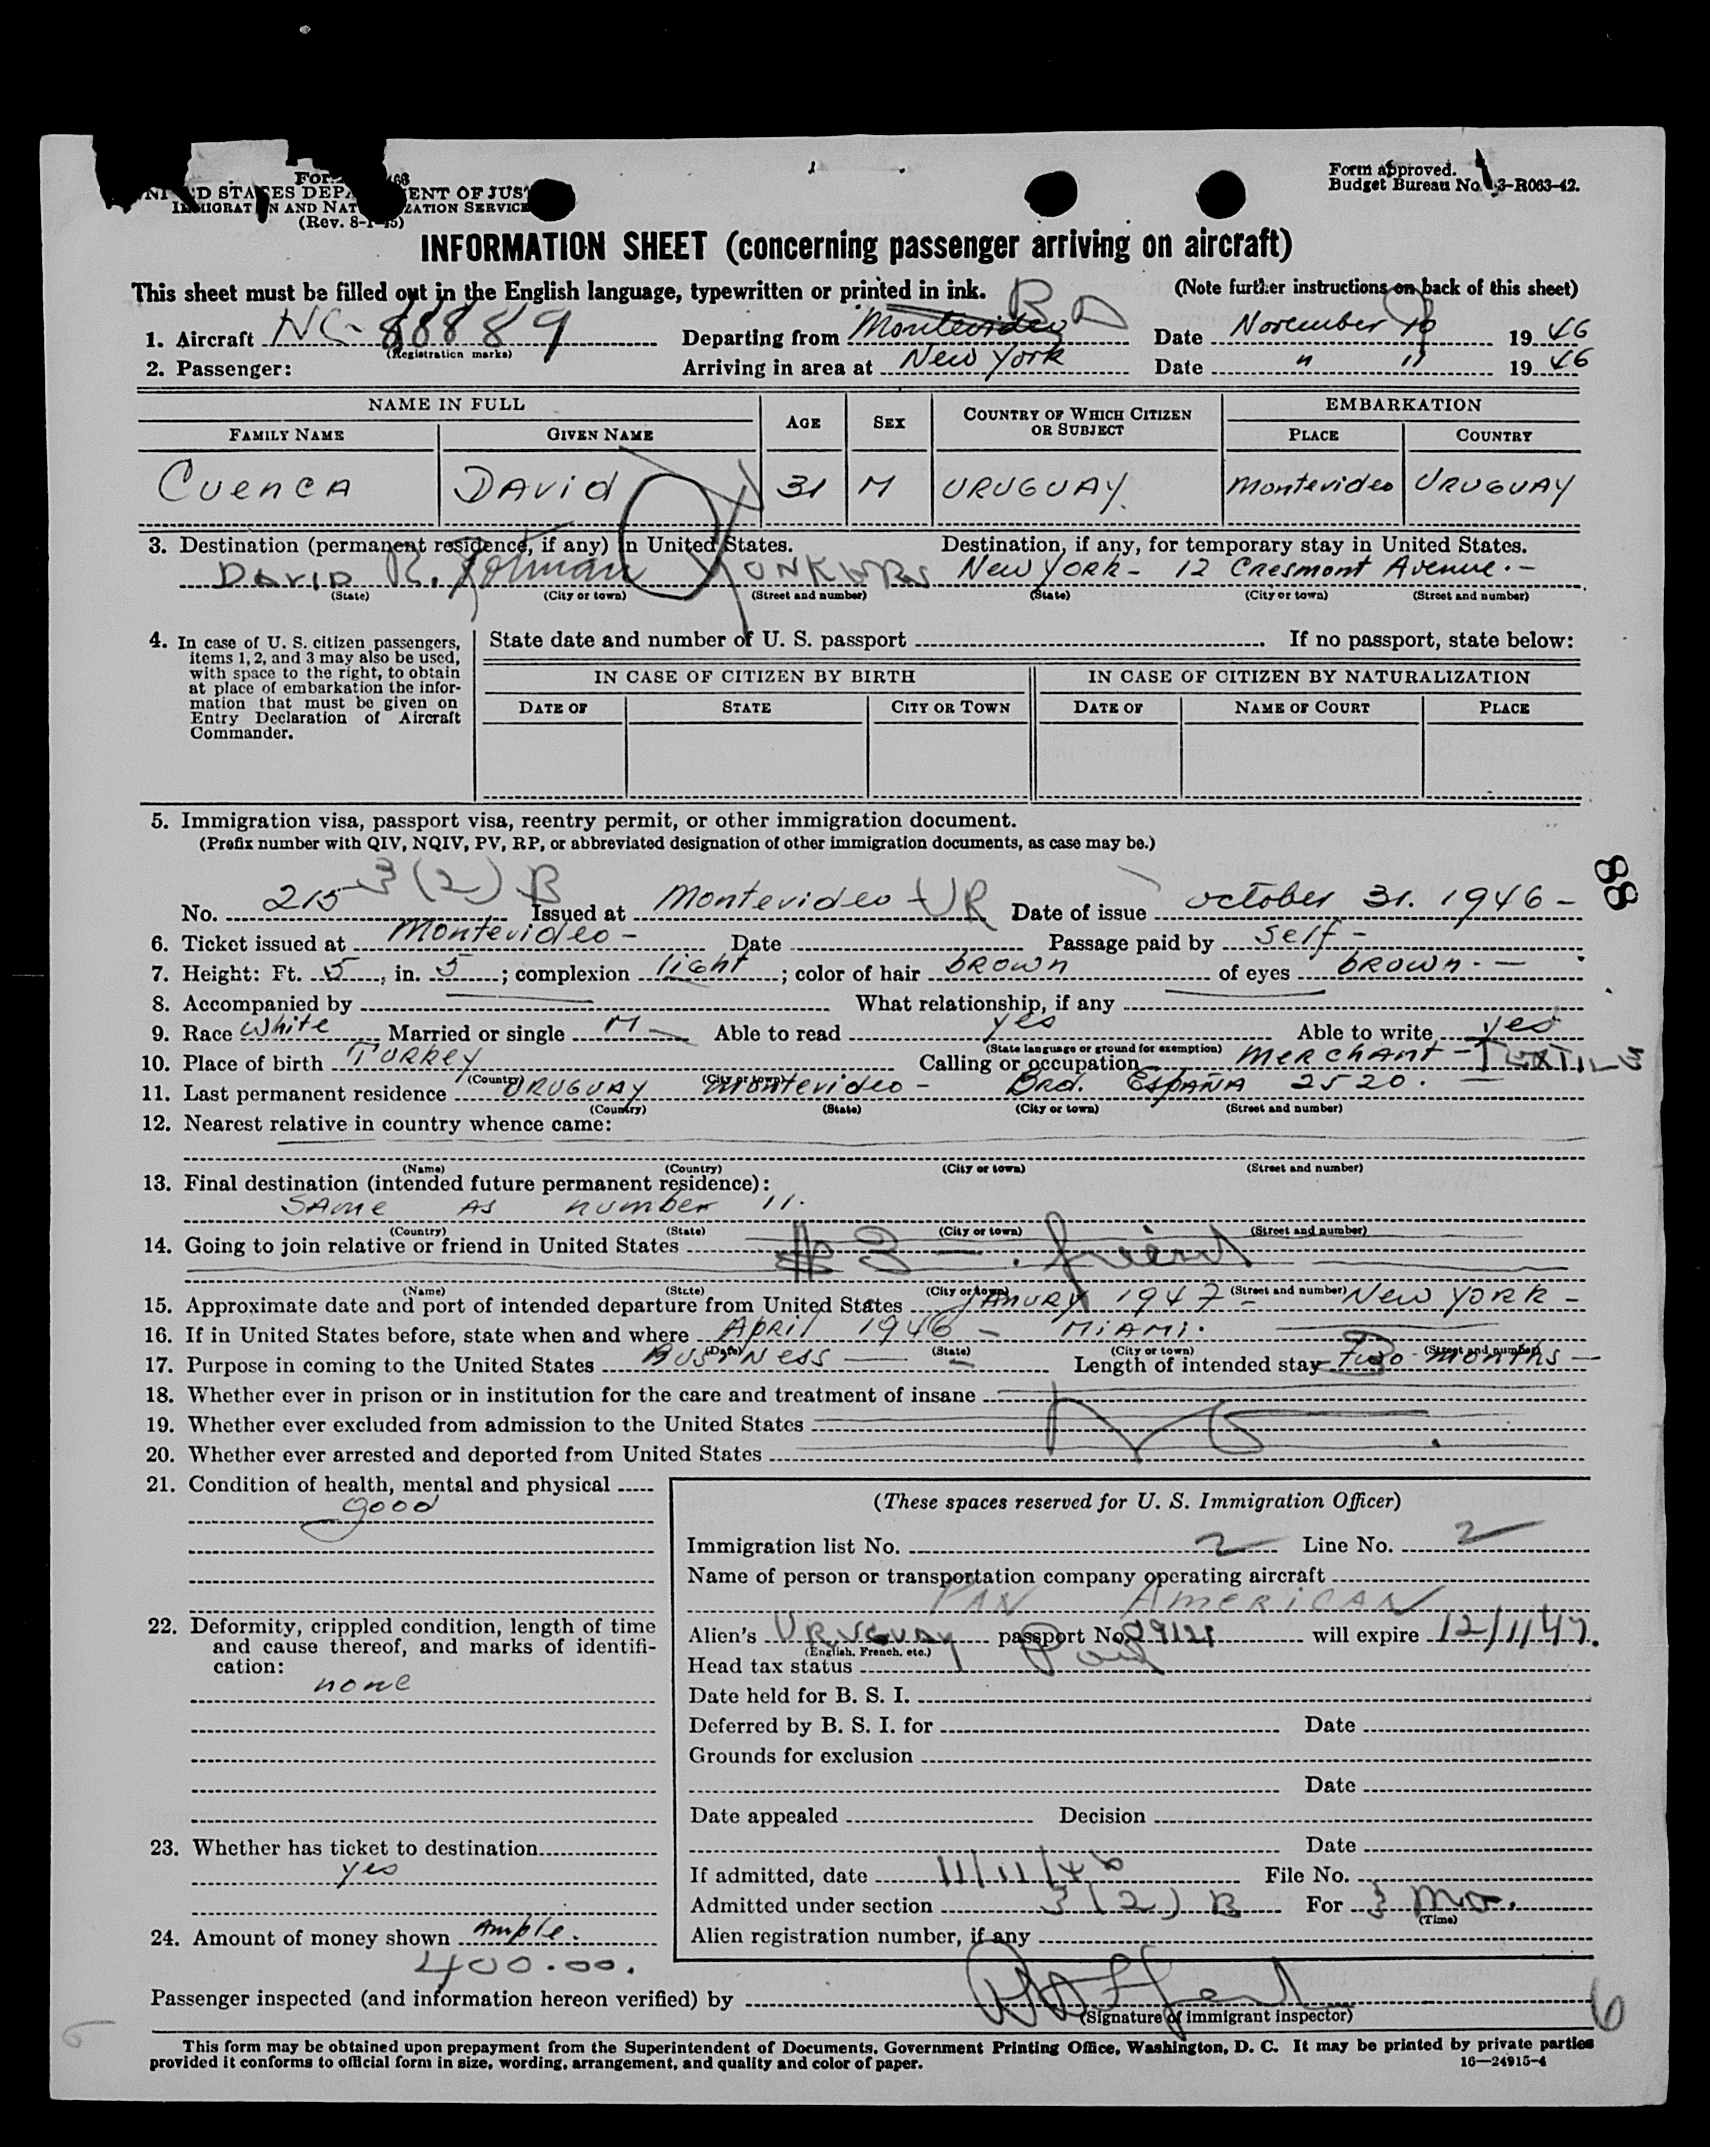 Form approved.
Budget Bureau No. 3-R063-42.
(Rev. 8-1-45)
INFORMATION SHEET (concerning passenger arriving on aircraft)
This sheet must be filled out in the English language, typewritten or printed in ink. (Note further instructions on back of this sheet)
1. Aircraft NC-88889 Departing from Montevideo BA Date November 10 1946
(Registration marks)
2. Passenger: Arriving in area at New York Date " 11 1946
NAME IN FULL AGE SEX COUNTRY OF WHICH CITIZEN OR SUBJECT EMBARKATION
FAMILY NAME GIVEN NAME PLACE COUNTRY
Cuenca David 31 M URUGUAY. Montevideo URUGUAY
3. Destination (permanent residence, if any) in United States. Destination, if any, for temporary stay in United States.
DAVID R. YONKERS New York - 12 Cresmont Avenue. -
(State) (City or town) (Street and number) (State) (City or town) (Street and number)
4. In case of U. S. citizen passengers, items 1, 2, and 3 may also be used, with space to the right, to obtain at place of embarkation the information that must be given on Entry Declaration of Aircraft Commander.
State date and number of U. S. passport If no passport, state below:
IN CASE OF CITIZEN BY BIRTH IN CASE OF CITIZEN BY NATURALIZATION
DATE OF STATE CITY OR TOWN DATE OF NAME OF COURT PLACE
5. Immigration visa, passport visa, reentry permit, or other immigration document.
(Prefix number with QIV, NQIV, PV, RP, or abbreviated designation of other immigration documents, as case may be.)
88
No. 215 3(2) B Issued at Montevideo - UR Date of issue October 31. 1946 -
6. Ticket issued at Montevideo - Date Passage paid by self -
7. Height: Ft. 5, in. 5; complexion light; color of hair brown of eyes brown. -
8. Accompanied by What relationship, if any
9. Race White Married or single M Able to read yes Able to write yes
(State language or ground for exemption)
10. Place of birth TURKEY Calling or occupation Merchant - TEXTILE
(Country) (City or town)
11. Last permanent residence URUGUAY Montevideo - Brd. España 2520. -
(Country) (State) (City or town) (Street and number)
12. Nearest relative in country whence came:
(Name) (Country) (City or town) (Street and number)
13. Final destination (intended future permanent residence):
same as number 11.
(Country) (State) (City or town) (Street and number)
14. Going to join relative or friend in United States # 3 - . friend
(Name) (State) (City or town) (Street and number)
15. Approximate date and port of intended departure from United States Janury 1947 - New York -
16. If in United States before, state when and where April 1946 - Miami.
(Date) (State) (City or town) (Street and number)
17. Purpose in coming to the United States Business - Length of intended stay Two months -
18. Whether ever in prison or in institution for the care and treatment of insane
19. Whether ever excluded from admission to the United States No
20. Whether ever arrested and deported from United States
21. Condition of health, mental and physical
good
22. Deformity, crippled condition, length of time and cause thereof, and marks of identification:
none
23. Whether has ticket to destination
yes
24. Amount of money shown Ample.
400.00.
(These spaces reserved for U. S. Immigration Officer)
Immigration list No. 2 Line No. 2
Name of person or transportation company operating aircraft
PAN AMERICAN
Alien's Uruguay passport No. 29121 will expire 12/1/47.
(English, French, etc.)
Head tax status Paid
Date held for B. S. I.
Deferred by B. S. I. for Date
Grounds for exclusion
Date
Date appealed Decision
Date
If admitted, date 11/11/46 File No.
Admitted under section 3(2) B For 3 Mo.
(Time)
Alien registration number, if any
Passenger inspected (and information hereon verified) by
(Signature of immigrant inspector)
6
This form may be obtained upon prepayment from the Superintendent of Documents, Government Printing Office, Washington, D. C. It may be printed by private parties
provided it conforms to official form in size, wording, arrangement, and quality and color of paper. 16—24915-4